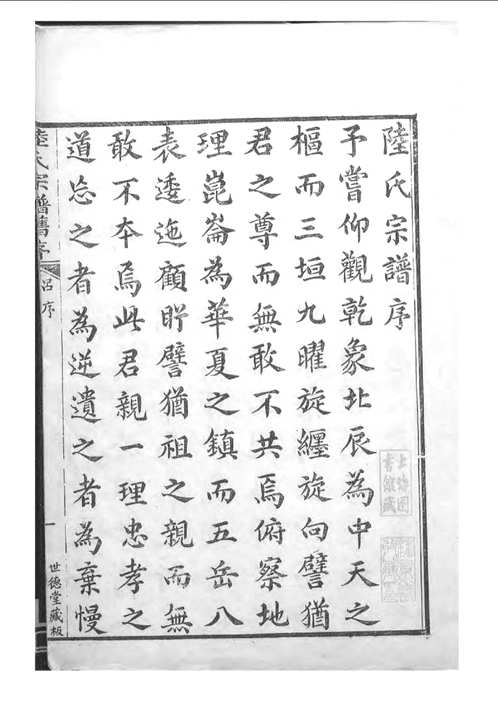 陸氏宗譜序
予嘗仰觀乾象北辰為中天之
樞而三垣九曜旋纏旋向譬猶
君之尊而無敢不共焉俯察地
理崑崙為華夏之鎮而五岳八
表逶迤顧盻譬猶祖之親而無
敢不本焉此君親一理忠孝之
道忘之者為逆遺之者為棄慢
陸氏宗譜舊序
呂序
一
世德堂藏板